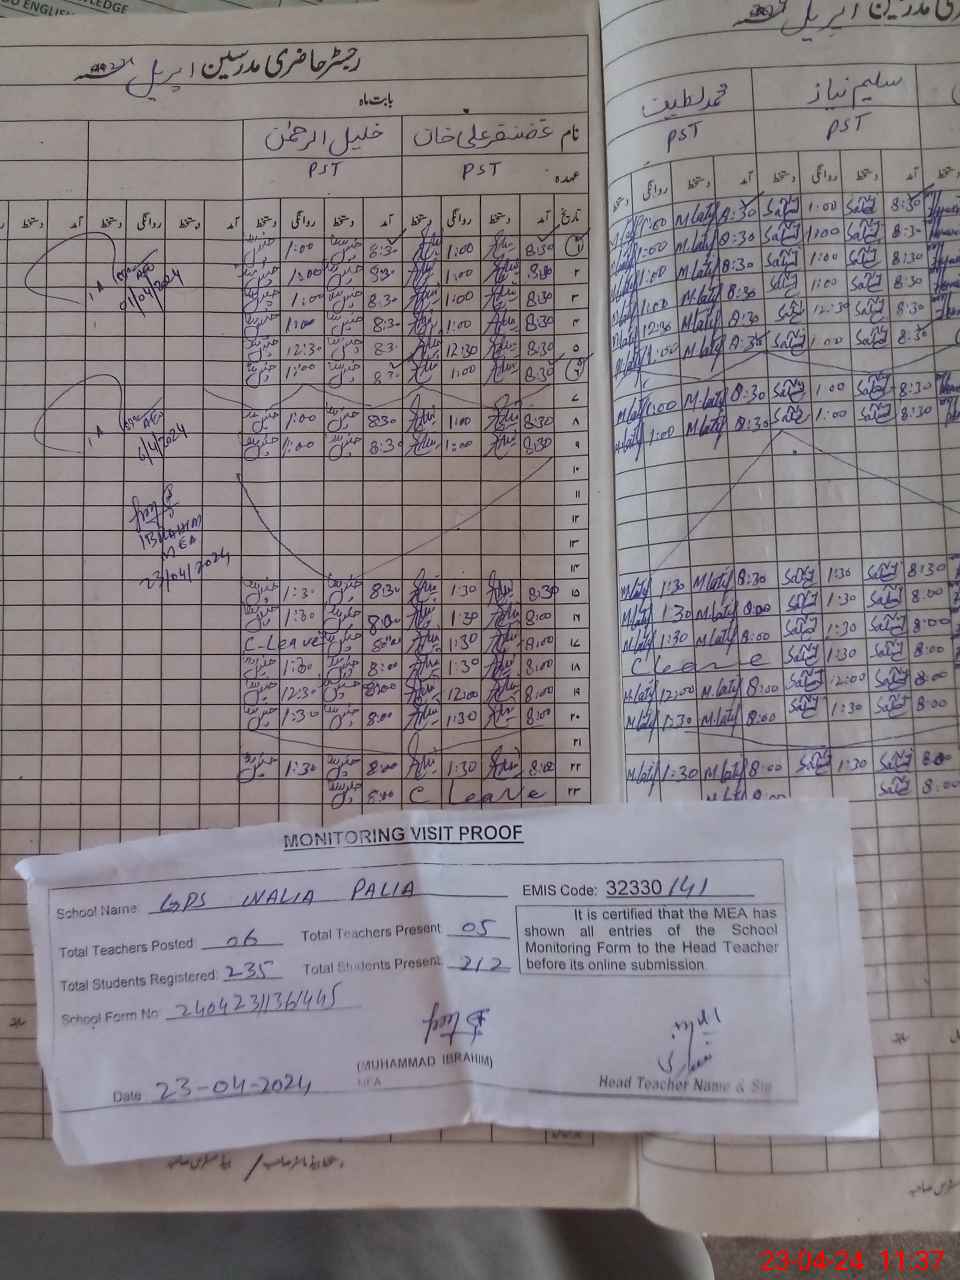 رجسٹر حاضری مدرسین اپریل
بابت ماہ
نام غضنفر علی خان خلیل الرحمٰن
عہدہ PST PST
تاریخ آمد دستخط روانگی دستخط آمد دستخط روانگی دستخط آمد دستخط روانگی دستخط
8:30 1:00 8:30 1:00
۲ 8:30 1:00 8:30 1:00
۳ 8:30 1:00 8:30 1:00
۴ 8:30 1:00 8:30 1:00
۵ 8:30 12:30 8:30 12:30
8:30 1:00 8:30 1:00
۷
۸ 8:30 1:00 8:30 1:00
۹ 8:30 1:00 8:30 1:00
۱۰
۱۱
۱۲
۱۳
۱۴
۱۵ 8:30 1:30 8:30 1:30
۱۶ 8:00 1:30 8:00 1:30
۱۷ 8:00 1:30 8:00 C-Leave
۱۸ 8:00 1:30 8:00 1:30
۱۹ 8:00 12:00 8:00 12:30
۲۰ 8:00 1:30 8:00 1:30
۲۱
۲۲ 8:00 1:30 8:00 1:30
۲۳ C Leave 8:00
01/04/2024
6/4/2024
IBRAHIM
MEA
23/04/2024
مدرسین اپریل
سلیم نیاز محمد لطیف
PST PST
آمد دستخط روانگی دستخط آمد دستخط روانگی
8:30 Saleem 1:00 Saleem 8:30 M.latif 1:00
8:30 Saleem 1:00 Saleem 8:30 M.latif 1:00
8:30 Saleem 1:00 Saleem 8:30 M.latif 1:00
8:30 Saleem 1:00 Saleem 8:30 M.latif 1:00
8:30 Saleem 12:30 Saleem 8:30 M.latif 12:30
8:30 Saleem 1:00 Saleem 8:30 M.latif 1:00
8:30 Saleem 1:00 Saleem 8:30 M.latif 1:00
8:30 Saleem 1:00 Saleem 8:30 M.latif 1:00
8:30 Saleem 1:30 Saleem 8:30 M.latif 1:30 M.latif
8:00 Saleem 1:30 Saleem 8:00 M.latif 1:30 M.latif
8:00 Saleem 1:30 Saleem 8:00 M.latif 1:30 M.latif
8:00 Saleem 1:30 Saleem C Leave
8:00 Saleem 12:00 Saleem 8:00 M.latif 12:00 M.latif
8:00 Saleem 1:30 Saleem 8:00 M.latif 1:30 M.latif
8:00 Saleem 1:30 Saleem 8:00 M.latif 1:30 M.latif
8:00 Saleem 8:00 M.latif
MONITORING VISIT PROOF
School Name: GPS WALIA PALIA EMIS Code: 32330141
Total Teachers Posted 06 Total Teachers Present 05
Total Students Registered: 235 Total Students Present: 212
School Form No 24042311361445
It is certified that the MEA has
shown all entries of the School
Monitoring Form to the Head Teacher
before its online submission.
(MUHAMMAD IBRAHIM)
MEA
Date 23-04-2024
Head Teacher Name & Sig
23-04-24 11:37